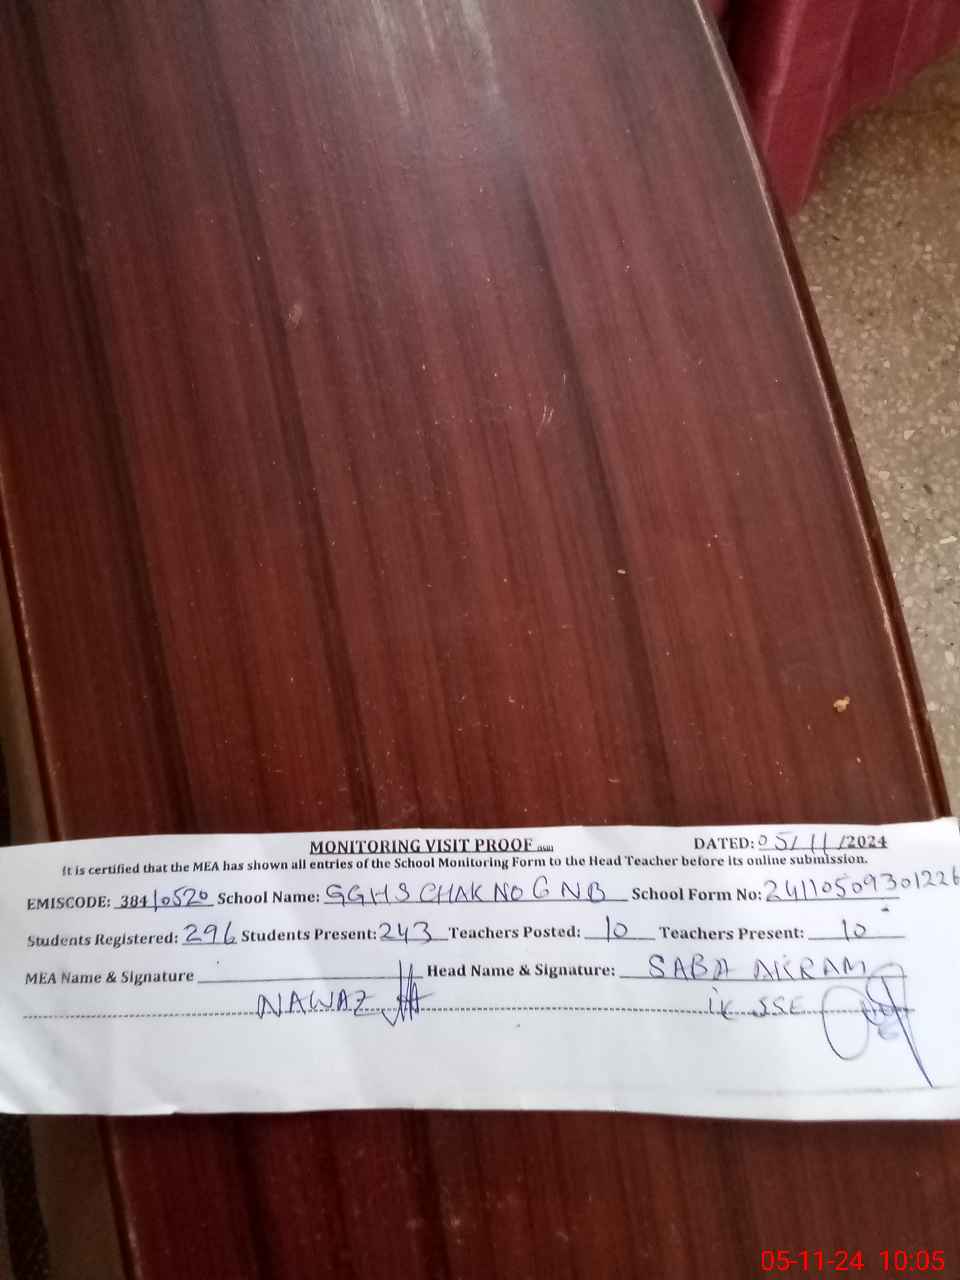 MONITORING VISIT PROOF DATED: 05/11/2024
It is certified that the MEA has shown all entries of the School Monitoring Form to the Head Teacher before its online submission.
EMISCODE: 38410520 School Name: GGHS CHAK NO 6 NB School Form No: 24110509301226
Students Registered: 296 Students Present: 243 Teachers Posted: 10 Teachers Present: 10
MEA Name & Signature Head Name & Signature: SABA AKRAM
NAWAZ SSE
05-11-24 10:05